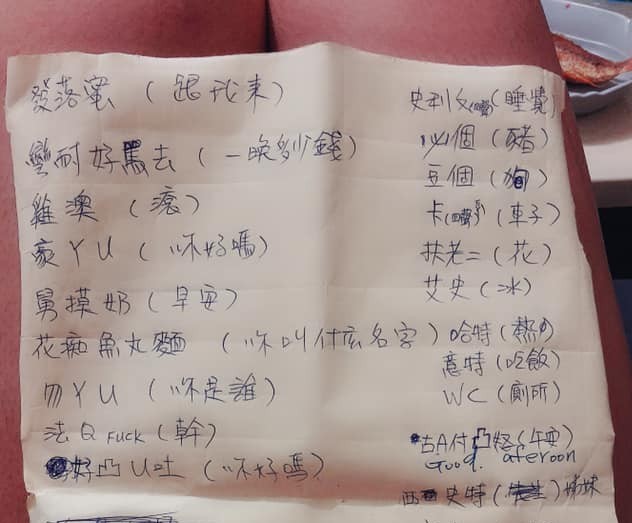 發落蜜 (跟我來)
彎耐好罵去 (一晚多少錢)
雞澳 (滾)
豪ㄚU (你好嗎)
舅摸奶 (早安)
花痴魚丸麵 (你叫什麼名字)
勿ㄚU (你是誰)
法Q FUCK (幹)
好凸U吐 (你好嗎)
史利ㄆ(四聲) (睡覺)
必個 (豬)
豆個 (狗)
卡(四聲) (車子)
扶老二 (花)
艾史 (冰)
哈特 (熱的)
意特 (吃飯)
WC (廁所)
古A付凸怒 (午安)
Good. aferoon
西史特 (姊妹